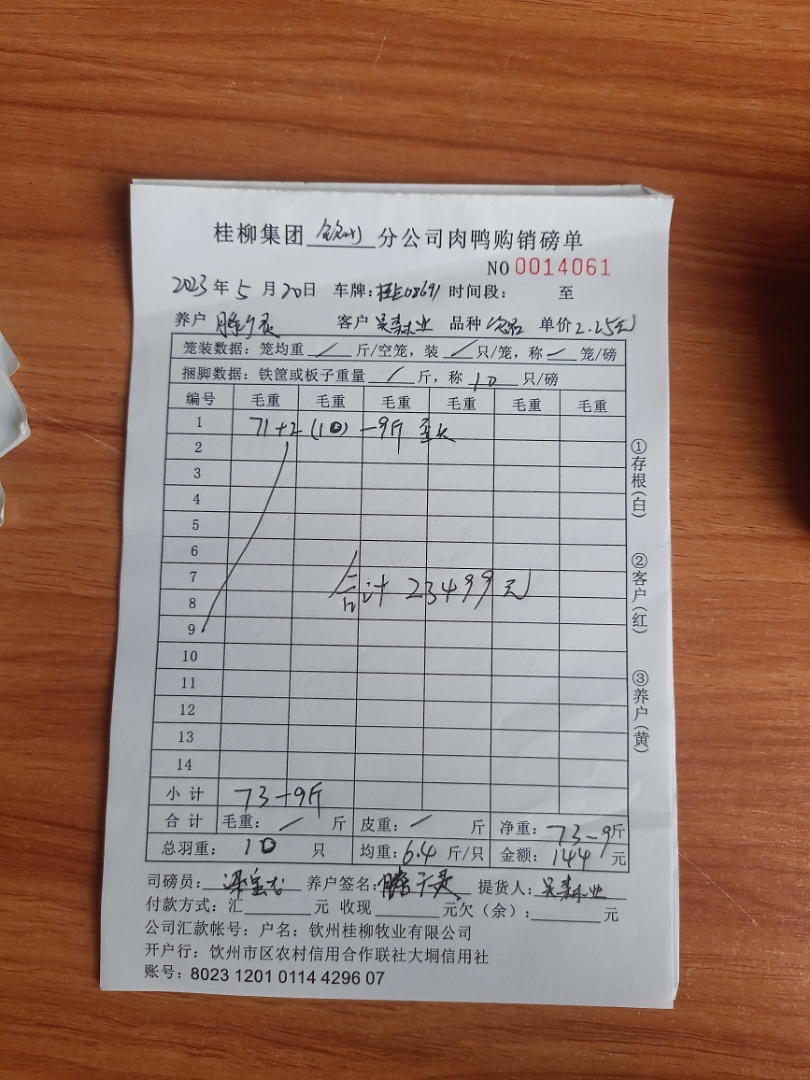 桂柳集团 钦州 分公司肉鸭购销磅单
NO 0014061
2023年5月20日 车牌: 08691 时间段: 至
养户 客户 吴森业 品种 单价 2.25元
笼装数据: 笼均重 / 斤/空笼, 装 / 只/笼, 称 / 笼/磅
捆脚数据: 铁筐或板子重量 / 斤, 称 10 只/磅
编号 毛重 毛重 毛重 毛重 毛重 毛重
1 71+2 (10) -9斤
2
3
4
5
6
7 合计 23499元
8
9
10
11
12
13
14
小计 73-9斤
合计 毛重: / 斤 皮重: / 斤 净重: 73-9斤
总羽重: 10 只 均重: 6.4 斤/只 金额: 144 元
司磅员: 养户签名: 提货人: 吴森业
付款方式: 汇 元 收现 元欠(余): 元
公司汇款帐号: 户名: 钦州桂柳牧业有限公司
开户行: 钦州市区农村信用合作联社大垌信用社
账号: 8023 1201 0114 4296 07
①存根(白)
②客户(红)
③养户(黄)